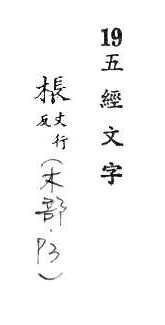 19五經文字
棖丈行反(木部.P3)